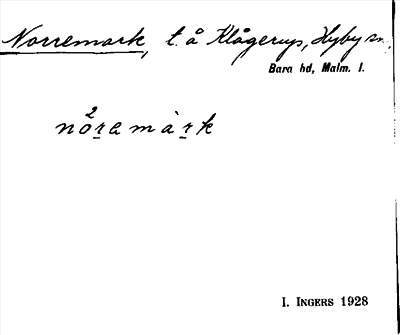 Norremark, t. å Klågerup, Hyby sn.,
Bara hd, Malm. l.
nò²ṟemàṟk
I. INGERS 1928